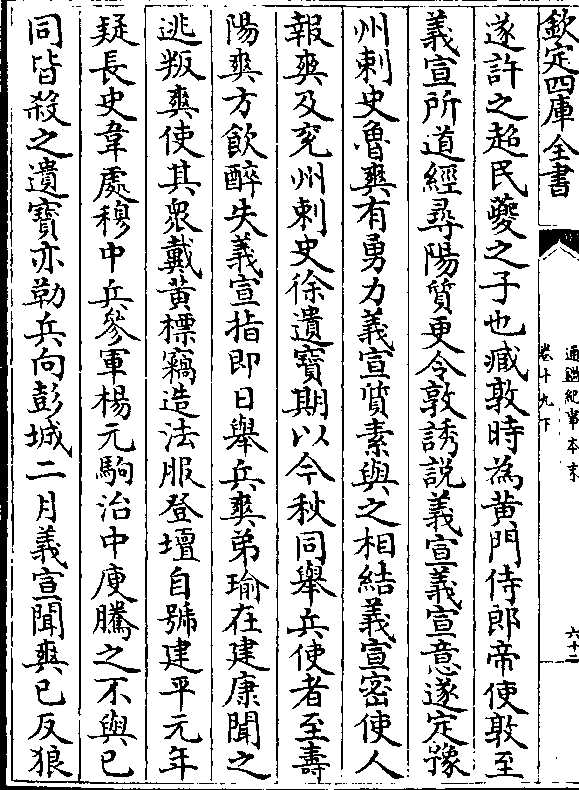 欽定四庫全書
通鑑紀事本末
卷十九下
六十二
遂許之超民夔之子也臧敦時為黄門侍郎帝使敦至
義宣所道經尋陽質更令敦誘説義宣義宣意遂定豫
州刺史魯爽有勇力義宣質素與之相結義宣密使人
報爽及兖州刺史徐遺寶期以今秋同舉兵使者至壽
陽爽方飲醉失義宣指即日舉兵爽弟瑜在建康聞之
逃叛爽使其衆戴黄標竊造法服登壇自號建平元年
疑長史韋處穆中兵參軍楊元駒治中庾騰之不與已
同皆殺之遺寶亦勒兵向彭城二月義宣聞爽已反狼